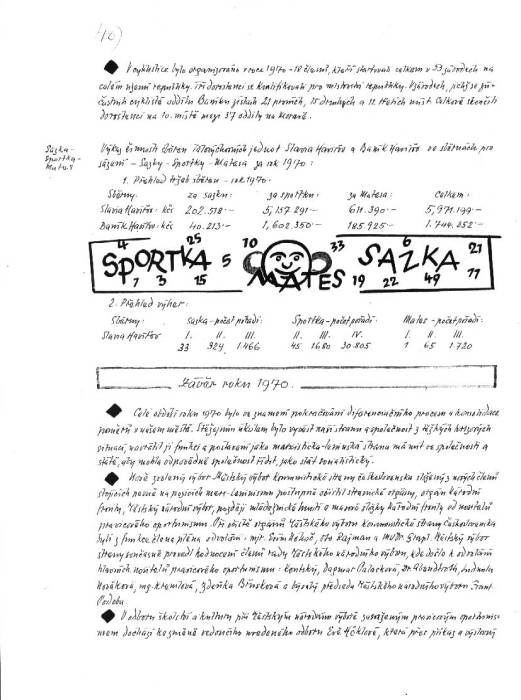 40)
V cyklistice bylo organizováno v roce 1970 - 18 členů, kteří startovali celkem v 53 závodech na
celém území republiky. Tři dorostenci se kvalifikovali pro mistrovství republiky. V závodech, jichž se zú-
častnili cyklisté oddílu Baníku získali 21 prvních, 15 druhých a 11 třetích míst. Celkově skončili
dorostenci na 10. místě mezi 37 oddíly na Moravě.
Sazka-
Sportka-
Mates
Výkaz činnosti sběren Tělovýchovných jednot Slavia Havířov a Baník Havířov ve sběrnách pro
sázení - Sazky - Sportky - Matesa za rok 1970:
1. Přehled tržeb sběren - rok 1970.
Sběrny: za sazku: za sportku: za Matesa: Celkem:
Slavia Havířov: kčs 202.518.- 5,157.291.- 611.390.- 5,971.199.-
Baník Havířov: kčs 40.213.- 1,602.350.- 185.925.-
SPORTKA MATES SAZKA
4 25 5 7 3 15 10 33 19 22 6 49 21 77
2. Přehled výher:
Sběrny: sazka - počet pořadí: Sportka - počet pořadí: Mates - počet pořadí:
Slavia Havířov I. II. III. II. III. IV. I. II. III.
33 324 1466 45 1680 30.805 1 65 1.720
Závěr roku 1970.
Celé období roku 1970 bylo ve znamení pokračování diferenciačního procesu a konsolidace
poměrů v našem městě. Stěžejním úkolem bylo vyvést naši stranu a společnost z těžkých krizových
situací, navrátit jí funkci a postavení jako marxisticko-leninská strana má mít ve společnosti a
státě, aby mohla odpovědně společnost řídit, jako stát socialistický.
Nově zvolený výbor Městský výbor Komunistické strany Československa složený z nových členů
stojících pevně na pozicích marx-leninismu postupně očistil stranické orgány, orgán národní
fronty, Městský národní výbor, později mládežnické hnutí a masové složky Národní fronty od nositelů
pravicového oportunismu. Při očistě orgánů Městského výboru Komunistické strany Československa
byli z funkce člena pléna odvoláni: mjr. Ervín Oto Rajman a MUDr. Městský výbor
strany současně provedl hodnocení členů rady Městského národního výboru, kde došlo k odvolání
hlavních nositelů pravicového oportunismu: Dagmar Palacková, Dr. Ludmila
Nováková, ing. Zdeňka a bývalý předseda Městského národního výboru Frant.
V odboru školství a kultury při Městském národním výboru zasaženým pravicovým oportunis-
mem dochází ke změně vedoucího uvedeného odboru Evě která přes příkaz a výslovný